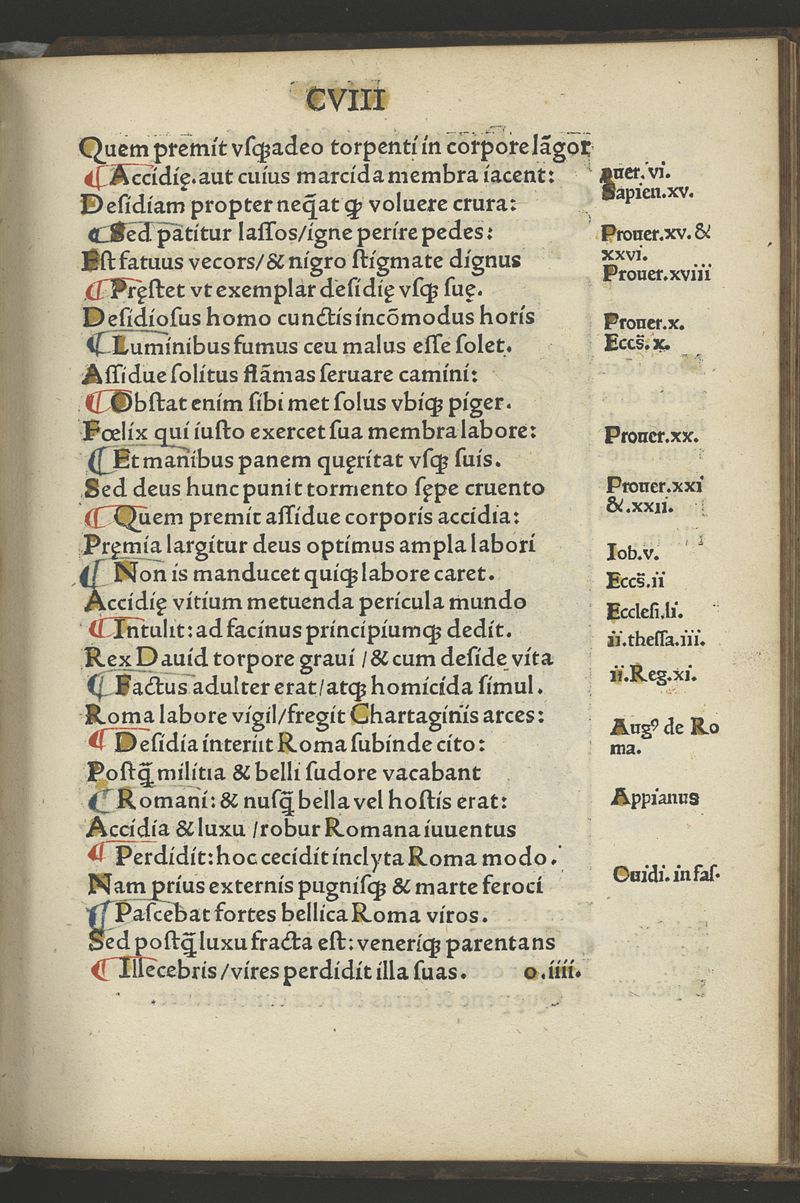 CVIII
Quem premit vſqꝫadeo torpenti in corpore lãgor
¶ Accidię. aut cuius marcida membra iacent:
Deſidiam propter neq̃at qꝫ voluere crura:
¶ Sed patitur laſſos/igne perire pedes:
Eſt fatuus vecors/& nigro ſtigmate dignus
¶ Pręſtet vt exemplar deſidię vſqꝫ ſuę.
Deſidioſus homo cunctis incõmodus horis
¶ Luminibus fumus ceu malus eſſe ſolet.
Aſſidue ſolitus flãmas ſeruare camini:
¶ Obſtat enim ſibi met ſolus vbiqꝫ piger.
Fœlix qui iuſto exercet ſua membra labore:
¶ Et manibus panem quęritat vſqꝫ ſuis.
Sed deus hunc punit tormento ſępe cruento
¶ Quem premit aſſidue corporis accidia:
Pręmia largitur deus optimus ampla labori
¶ Non is manducet quiqꝫ labore caret.
Accidię vitium metuenda pericula mundo
¶ Intulit: ad facinus principiumqꝫ dedit.
Rex Dauid torpore graui /& cum deſide vita
¶ Factus adulter erat/atqꝫ homicida ſimul.
Roma labore vigil/fregit Chartaginis arces:
¶ Deſidia interiit Roma ſubinde cito:
Poſtq̃ militia & belli ſudore vacabant
¶ Romani: & nuſq̃ bella vel hoſtis erat:
Accidia & luxu /robur Romana iuuentus
¶ Perdidit: hoc cecidit inclyta Roma modo.
Nam prius externis pugniſqꝫ & marte feroci
¶ Paſcebat fortes bellica Roma viros.
Sed poſtq̃ luxu fracta eſt: veneriqꝫ parentans
¶ Illecebris/vires perdidit illa ſuas. o.iiii.
vi.
Sapien.xv.
Prouer.xv. &
xxvi.
Prouer.xviii
Prouer.x.
Eccs̃.x.
Prouer.xx.
Prouer.xxi
&.xxii.
Iob.v.
Eccs̃.ii
Eccleſi.li.
ii.theſſa.iii.
ii.Reg.xi.
Augꝰ de Ro
ma.
Appianus
Ouidi. in faſ.